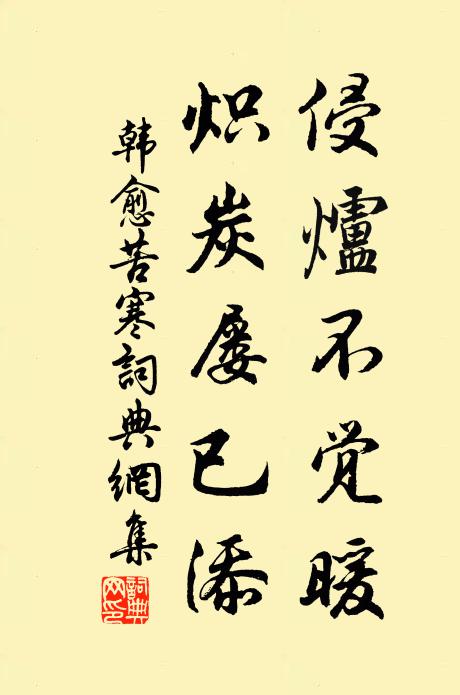 侵爐不觉暖
炽炭屡已添
韩愈苦寒詞典網集
詞典网印